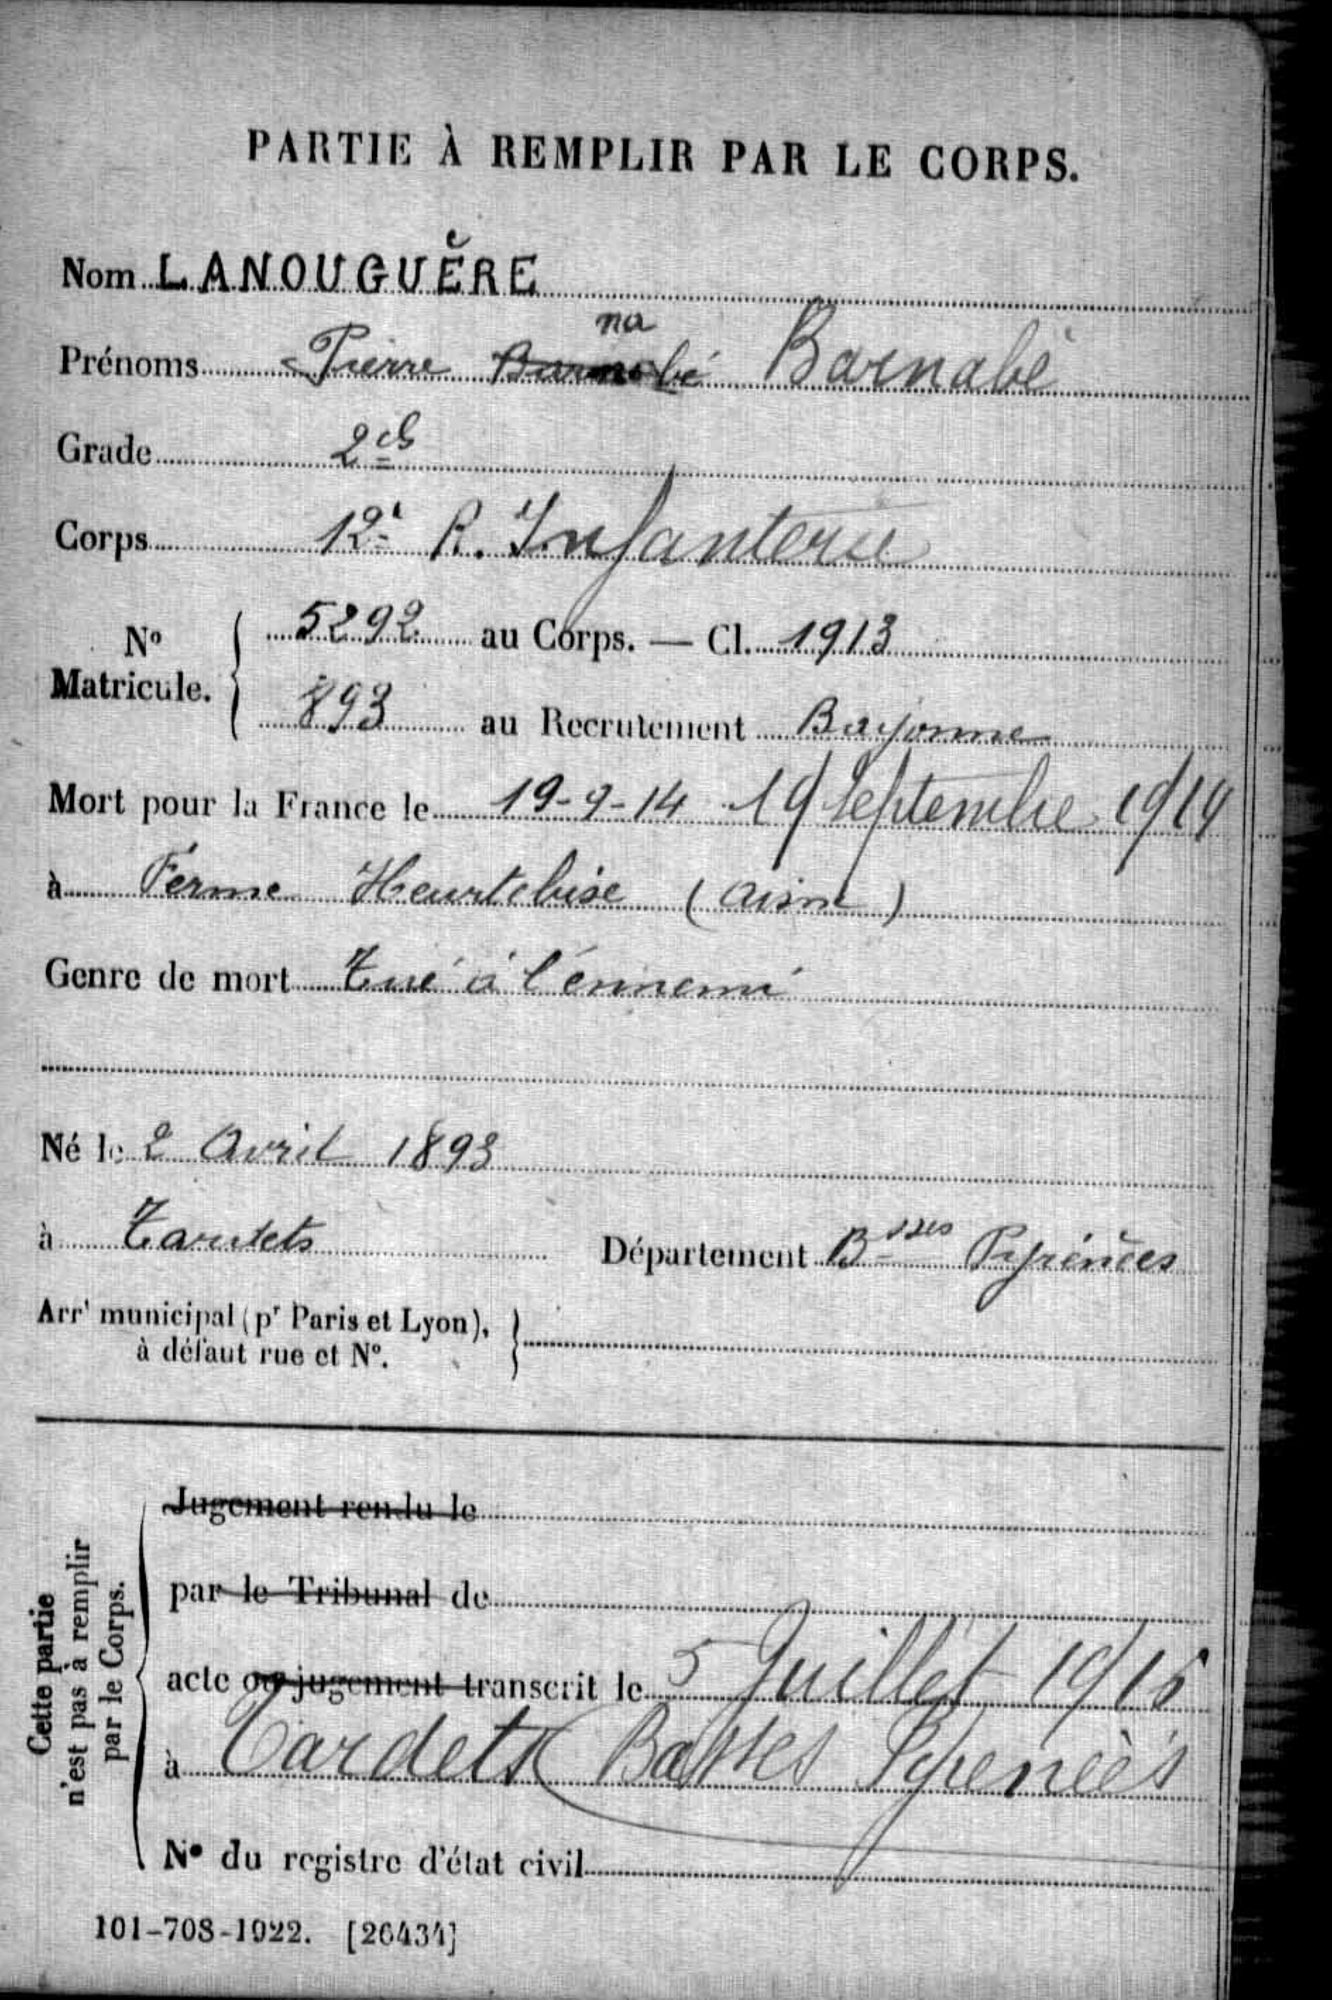 PARTIE À REMPLIR PAR LE CORPS.
Nom LANOUGUÈRE
na
Prénoms Pierre bé Barnabé
Grade 2e cl
Corps 12e R. Infanterie
No Matricule. 5292 au Corps. — Cl. 1913
893 au Recrutement Bayonne
Mort pour la France le 19-9-14 19 Septembre 1914
à Ferme Heurtebise (Aisne)
Genre de mort Tué à l'énnemi
Né le 2 Avril 1893
à Tardets Département Bsses Pyrénées
Arrt municipal (pr Paris et Lyon),
à défaut rue et No.
Cette partie
n'est pas à remplir
par le Corps.
Jugement rendu le
par le Tribunal de
acte ou jugement transcrit le 5 Juillet
à Tardets Basses Pyrénées
No du registre d'état civil
101-708-1922. [26434]